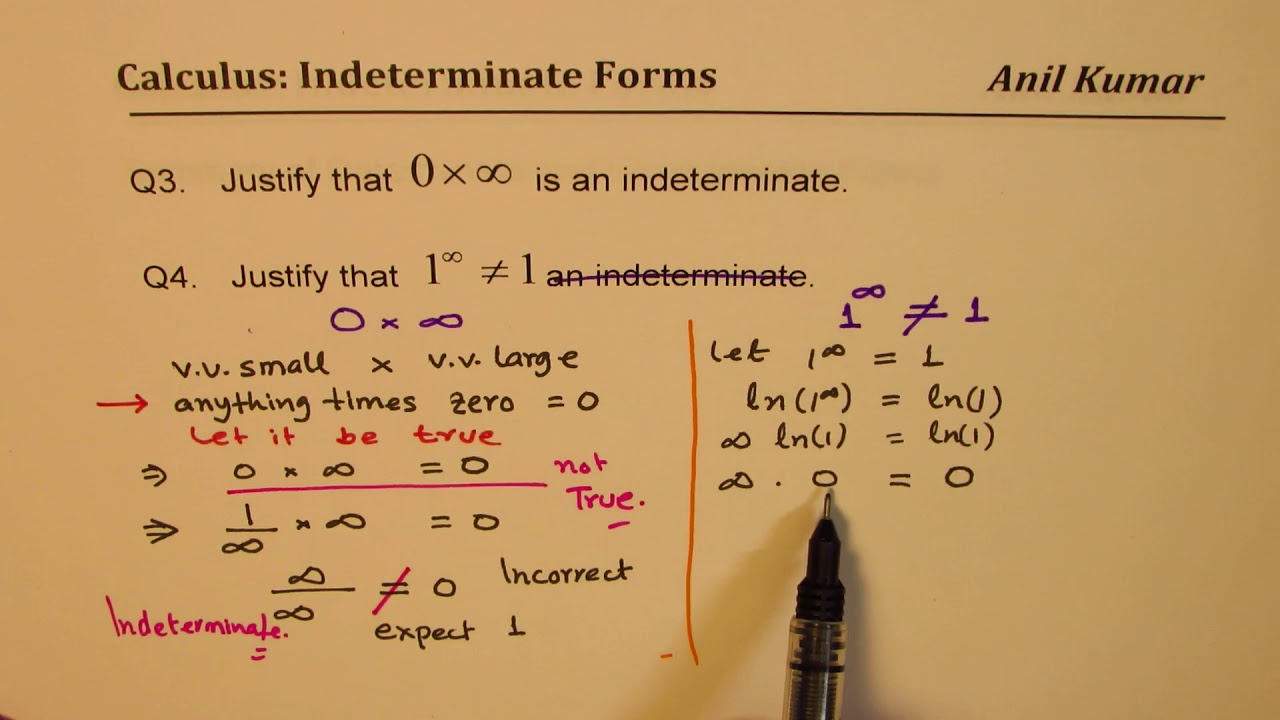 Calculus: Indeterminate Forms Anil Kumar
Q3. Justify that 0 × ∞ is an indeterminate.
Q4. Justify that 1^∞ ≠ 1 an indeterminate.
0 × ∞
v.v. small × v.v. large
→ anything times zero = 0
Let it be true
⇒ 0 × ∞ = 0 not True.
⇒ 1/∞ × ∞ = 0
∞/∞ ≠ 0 Incorrect
Indeterminate. expect 1
1^∞ ≠ 1
Let 1^∞ = 1
ln(1^∞) = ln(1)
∞ ln(1) = ln(1)
∞ · 0 = 0